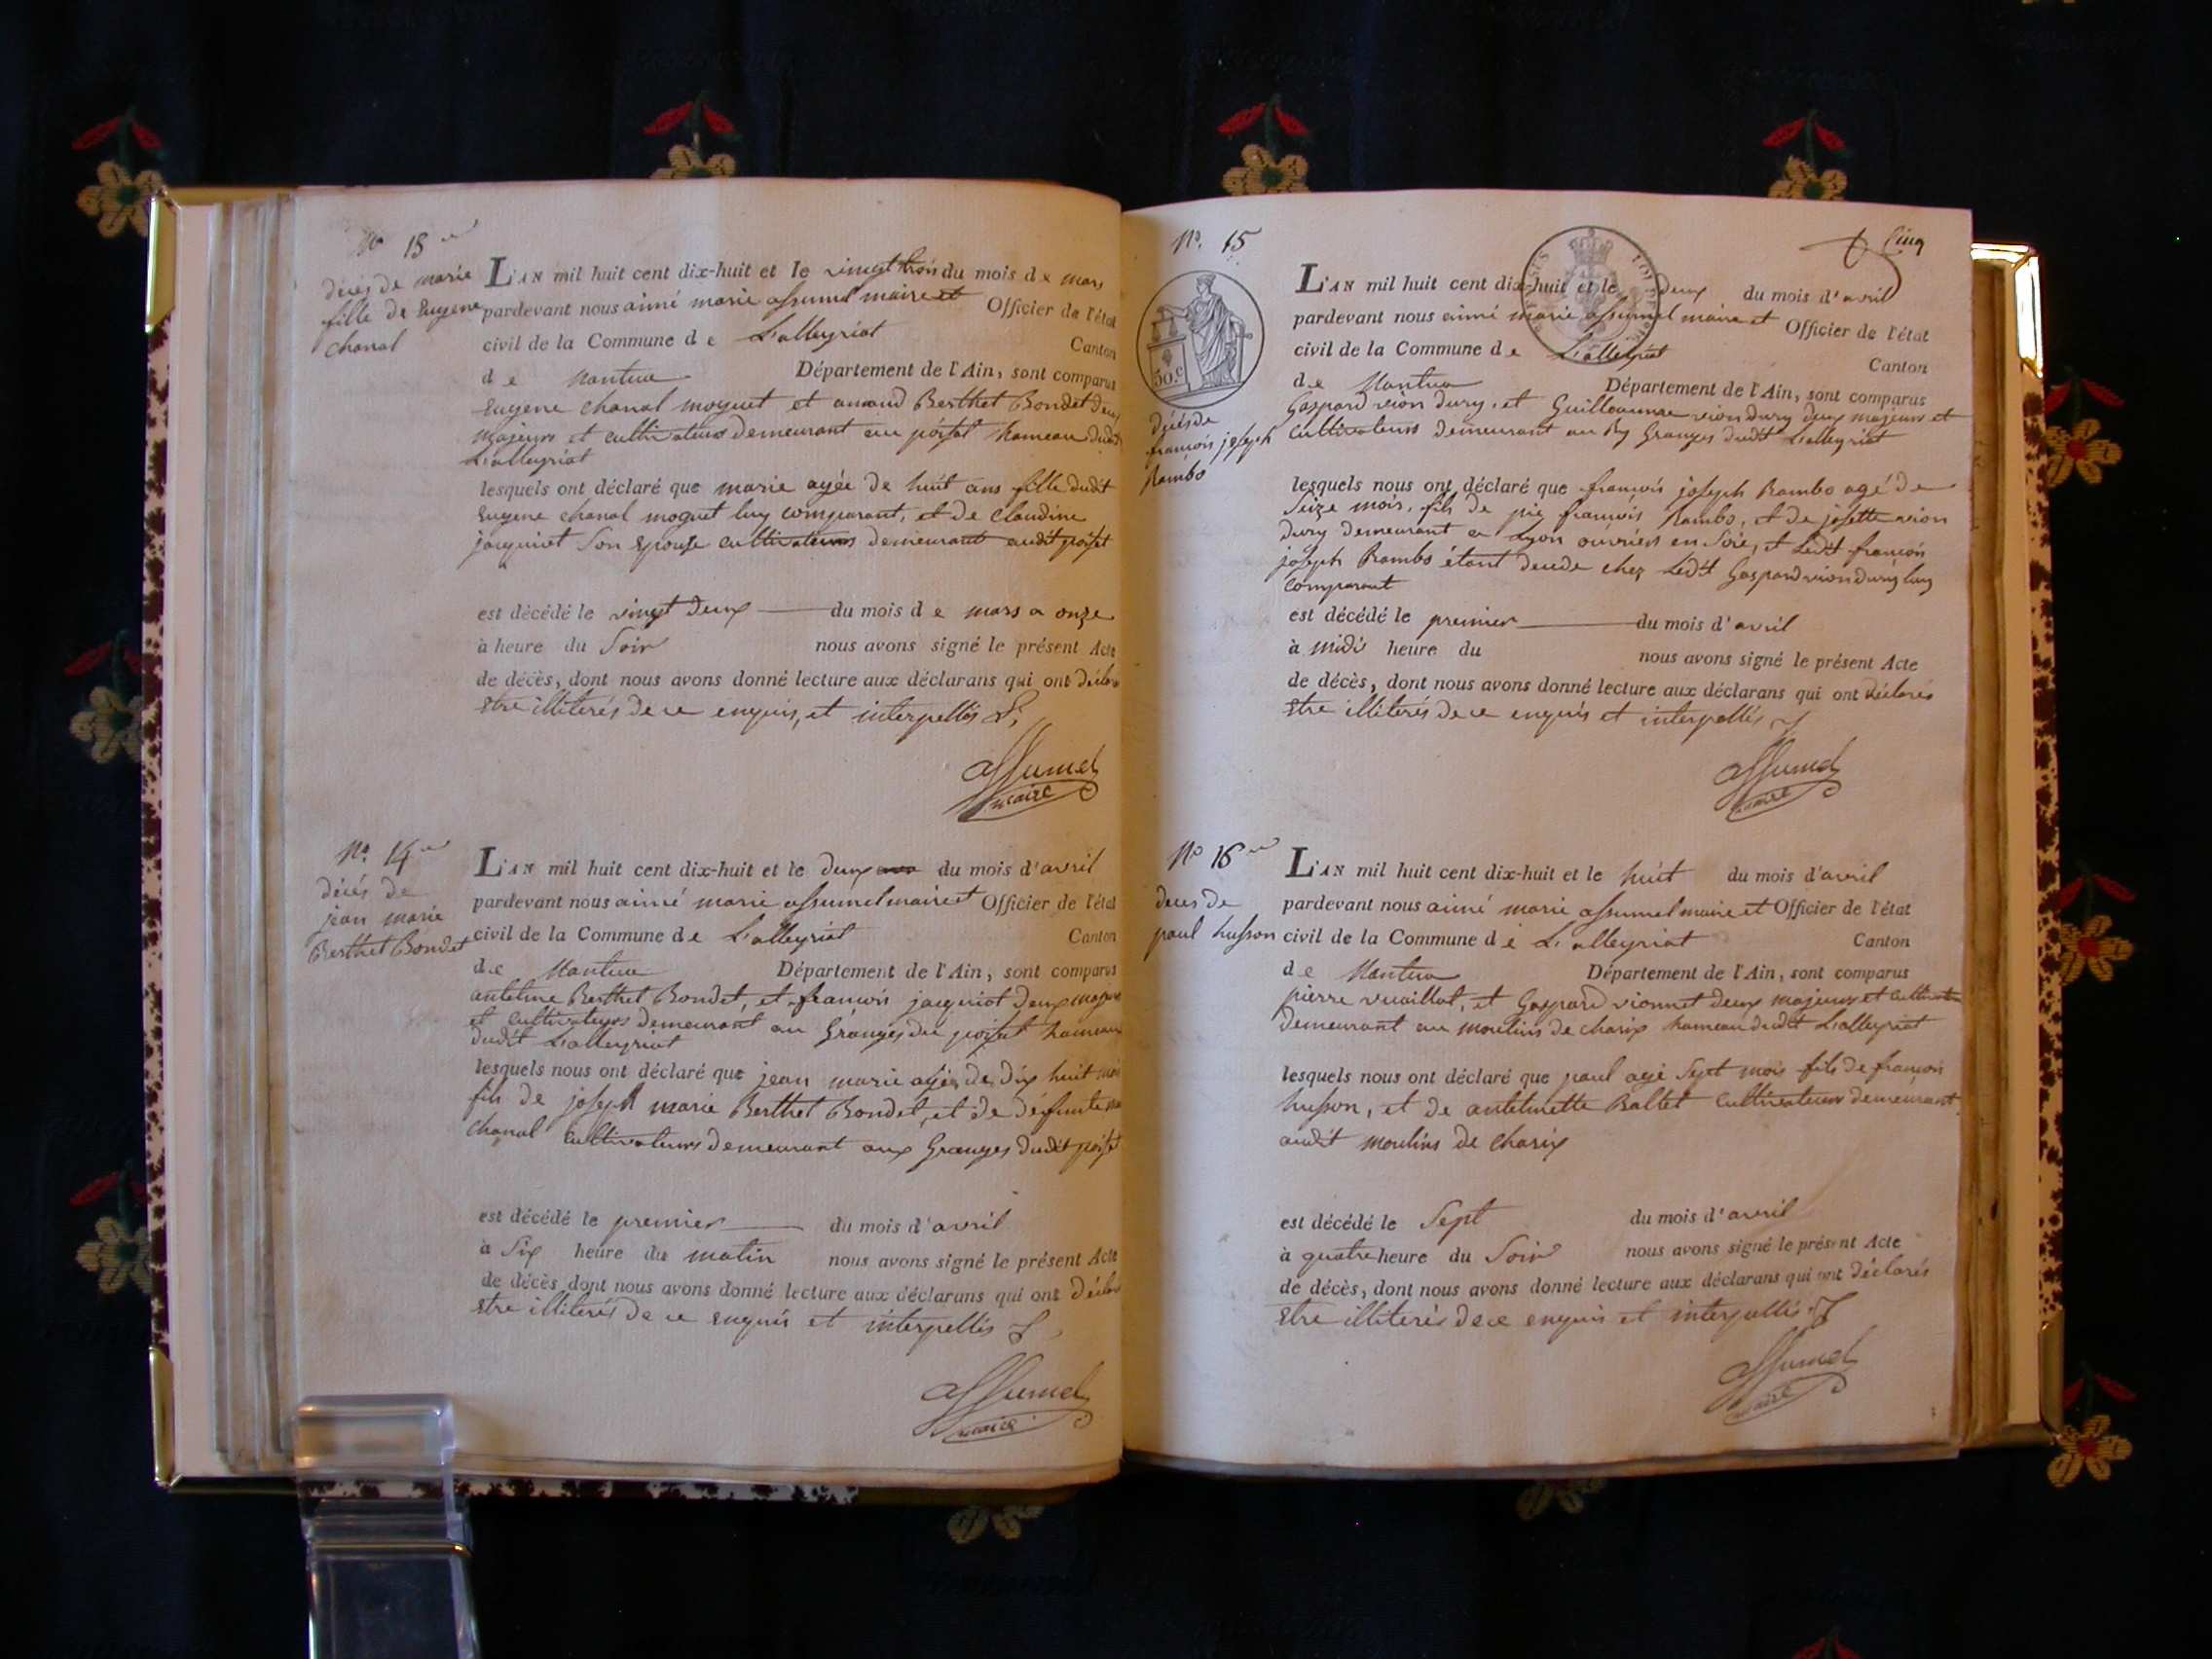 No 13
décès de marie
fille de Eugene
chanal
L'AN mil huit cent dix-huit et le vingt trois du mois de mars
pardevant nous aimé marie assumel maire et Officier de l'état
civil de la Commune de L'alleyriat Canton
de Nantua Département de l'Ain, sont comparus
Eugene chanal moguet et amand Berthet Bondet deux
majeurs et cultivateurs demeurant au poisat hameau dudit
L'alleyriat
lesquels ont déclaré que marie agée de huit ans fille dudit
Eugene chanal moguet luy comparant, et de claudine
jacquiot son Epouse cultivateurs demeurant audit poisat
est décédé le vingt deux du mois de mars a onze
à heure du Soir nous avons signé le présent Acte
de décès, dont nous avons donné lecture aux déclarans qui ont déclaré
Etre illiterés de ce enquis, et interpellés
assumel
maire
No. 14
décés de
jean marie
Berthet Bondet
L'AN mil huit cent dix-huit et le deux du mois d'avril
pardevant nous aimé marie assumel maire et Officier de l'état
civil de la Commune de L'alleyriat Canton
de Nantua Département de l'Ain, sont comparus
antelme Berthet Bondet, et françois jacquiot deux majeurs
et cultivateurs demeurant au Granges du poisat hameau
dudit L'alleyriat
lesquels nous ont déclaré que jean marie agé de dix huit moi
fils de joseph marie Berthet Bondet, et de défunte
chanal cultivateurs demeurant aux Granges dudit poisat
est décédé le premier du mois d'avril
à Six heure du matin nous avons signé le présent Acte
de décès dont nous avons donné lecture aux déclarans qui ont déclaré
Etre illiterés de ce enquis et interpellés
assumel
maire
No. 15
Cinq
50.c
décés de
françois joseph
Rambo
L'AN mil huit cent dix-huit et le deux du mois d'avril
pardevant nous aimé marie assumel maire et Officier de l'état
civil de la Commune de L'alleyriat Canton
de Nantua Département de l'Ain, sont comparus
Gaspard vion dury, et Guilleaume vion dury deux majeurs et
cultivateurs demeurant au Granges dudit L'alleyriat
lesquels nous ont déclaré que françois joseph Rambo agé de
Seize mois, fils de pie françois Rambo, et de josette vion
dury demeurant a Lyon ouvriers en Soie, et Ledit françois
joseph Rambo étant decede chez Ledit Gaspard vion dury luy
comparant
est décédé le premier du mois d'avril
à midi heure du nous avons signé le présent Acte
de décès, dont nous avons donné lecture aux déclarans qui ont déclarés
Etre illiterés de ce enquis et interpellés
assumel
maire
No 16
deces de
paul husson
L'AN mil huit cent dix-huit et le huit du mois d'avril
pardevant nous aimé marie assumel maire et Officier de l'état
civil de la Commune de L'alleyriat Canton
de Nantua Département de l'Ain, sont comparus
pierre vuaillat, et Gaspard vionnet deux majeurs et cultivateurs
demeurant au moulins de charix hameau dudit L'alleyriat
lesquels nous ont déclaré que paul agé Sept mois fils de françois
husson, et de antelmette Baltet cultivateurs demeurant
audit moulins de charix
est décédé le Sept du mois d'avril
à quatre heure du Soir nous avons signé le présent Acte
de décès, dont nous avons donné lecture aux déclarans qui ont déclarés
Etre illiterés de ce enquis et interpellés
assumel
maire